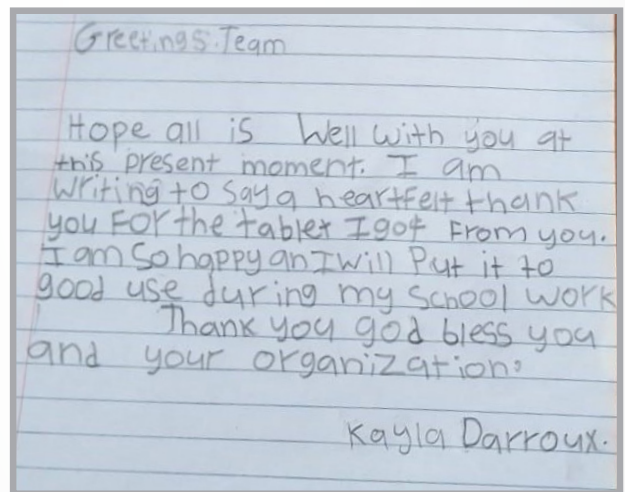 Greetings. Team
Hope all is Well with you at
this present moment. I am
writing to say a heartfelt thank
you For the tablet I got From you.
I am So happy an I will Put it to
good use during my School work
Thank you god bless you
and your organization.
Kayla Darroux.